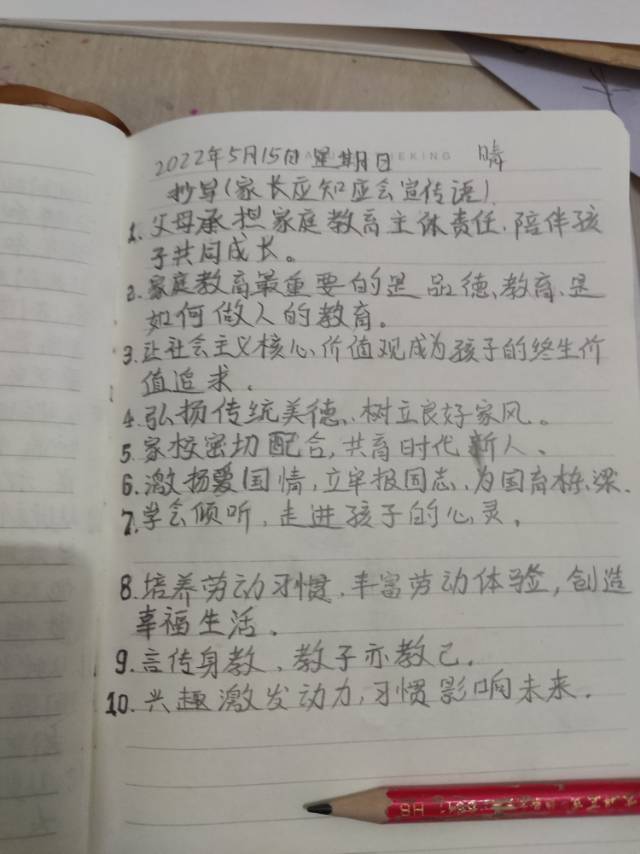 2022年5月15日 星期日 EKING 晴
抄写(家长应知应会宣传语).
1. 父母承担家庭教育主体责任.陪伴孩
子共同成长。
2. 家庭教育最重要的是品德、教育、是
如何做人的教育。
3. 让社会主义核心、价值观成为孩子的终生价
值追求.
4. 弘扬传统美德、树立良好家风。
5. 家校密切配合,共育时代新人、
6. 激扬爱国情,立牢报国志、为国育栋梁.
7. 学会倾听、走进孩子的心灵.
8. 培养劳动习惯、丰富劳动体验,创造
幸福生活.
9. 言传身教、教子亦教己.
10. 兴趣激发动力,习惯影响未来.